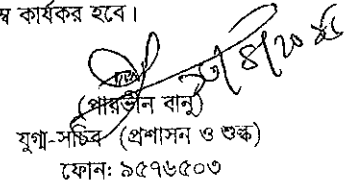 ম্ব কার্যকর হবে।
(পারভীন বানু)
যুগ্ম-সচিব (প্রশাসন ও শুল্ক)
ফোন: ৯৫৭৬৫০৩